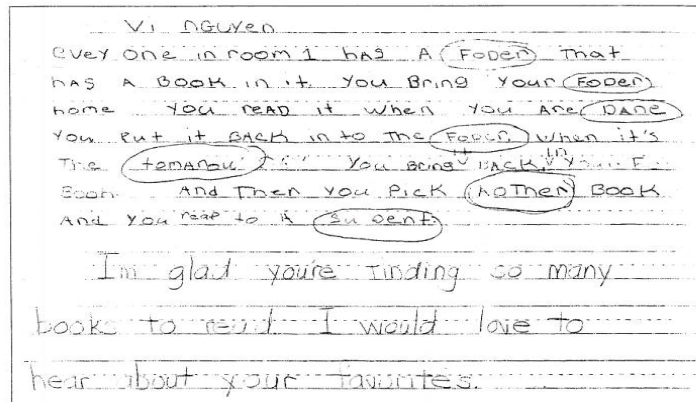 Vi nguyen
evey one in room 1 has A Foder That
has A Book in it. You Bring Your Foder
home You reAD it when You Are Dane
You Put it BACK in to The Foder. when it's
The tomarou You Bring it BACK in Your F
Book And Then You Pick noTher Book
And you reap to A Su Dent.
I'm glad you're finding so many
books to read. I would love to
hear about your favorites.